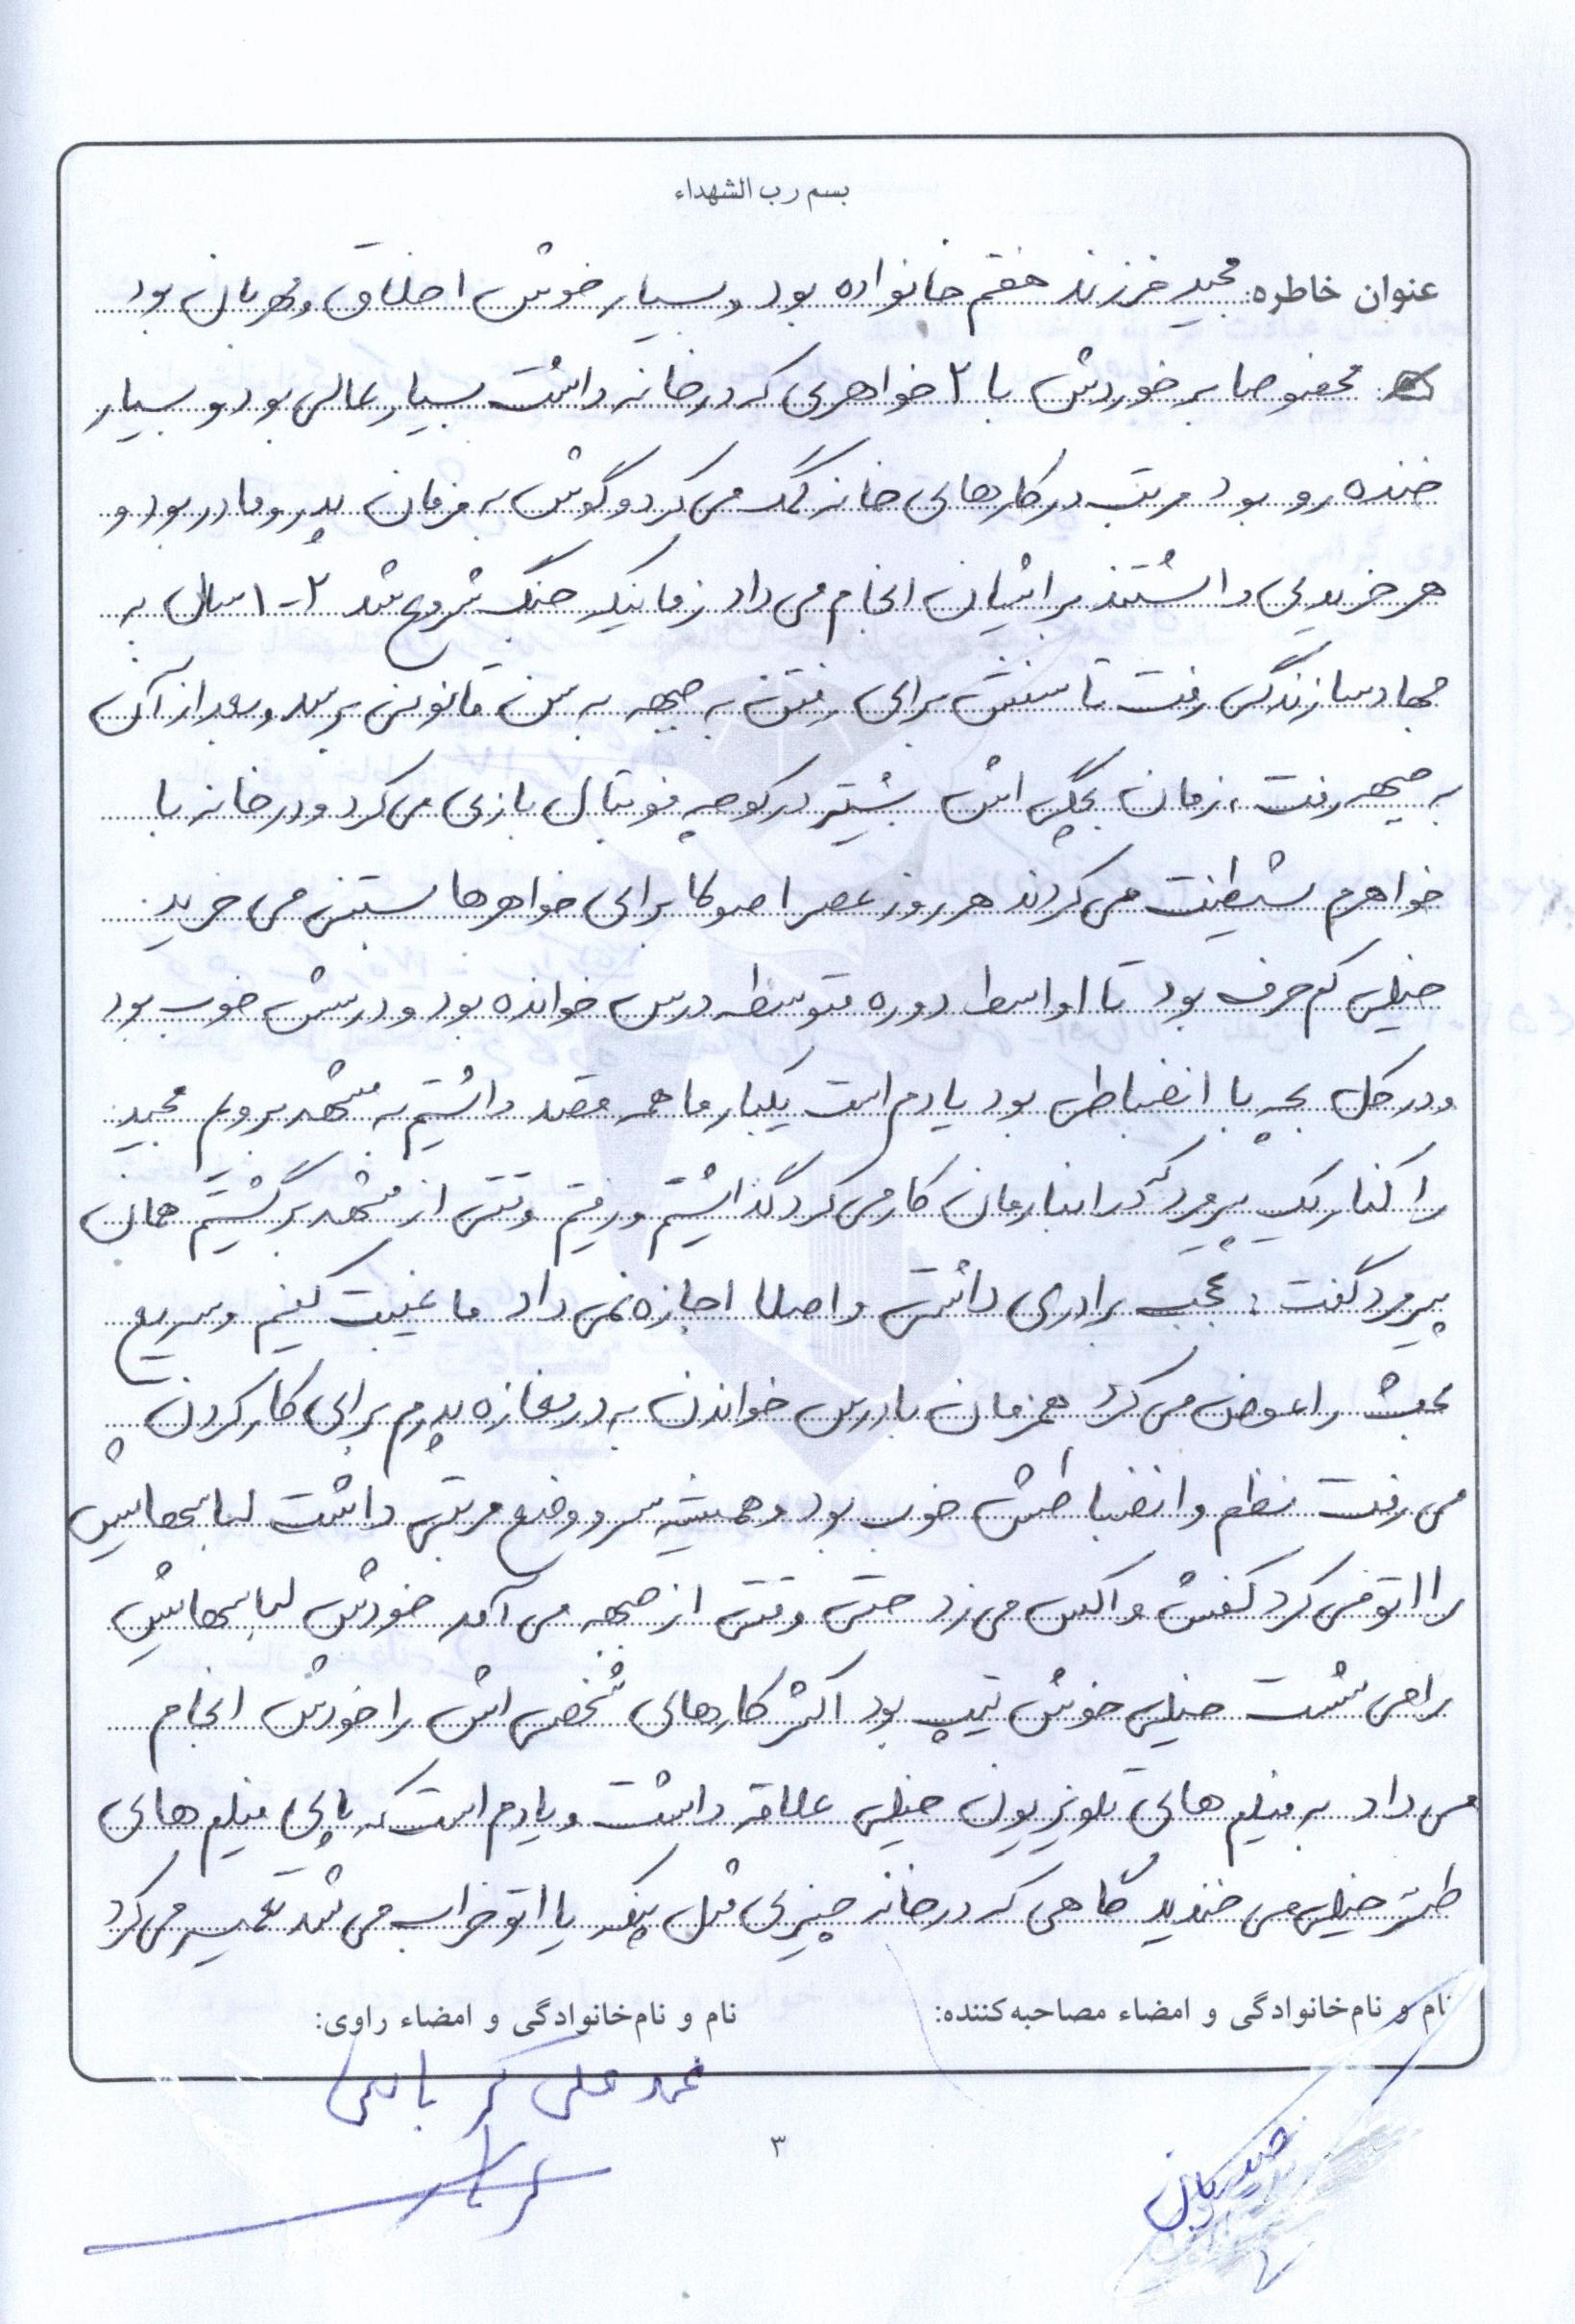 بسم رب الشهداء
عنوان خاطره: مجید فرزند هفتم خانواده بود و بسیار خوش اخلاق و مهربان بود
مخصوصا برخوردش با ۲ خواهری که در خانه داشت بسیار عالی بود و بسیار
خنده رو بود مرتب در کارهای خانه کمک می کرد و گوش به فرمان پدر و مادر بود و
هر خریدی داشتند برایشان انجام می داد زمانیکه جنگ شروع شد ۲-۱ سال به
جهاد سازندگی رفت تا سنش برای رفتن به جبهه به سن قانونی برسد و بعد از آن
به جبهه رفت، زمان بچگی اش بیشتر در کوچه فوتبال بازی می کرد و در خانه با
خواهرم شیطنت می کردند هر روز عصر اصولا برای خواهرها بستنی می خرید.
خیلی کم حرف بود تا اواسط دوره متوسطه درس خوانده بود و درسش خوب بود
و در کل بچه با انضباطی بود یادم است یکبار ما همه قصد داشتیم به مشهد برویم مجید
را کنار یک پیرمرد که در انبارمان کار می کرد گذاشتیم و رفتیم وقتی از مشهد برگشتیم همان
پیرمرد گفت: عجب برادری داشتی و اصلا اجازه نمی داد ما غیبت کنیم و سریع
بحث را عوض می کرد همزمان با درس خواندن به در مغازه پدرم برای کار کردن
می رفت نظم و انضباطش خوب بود و همیشه سر و وضع مرتبی داشت لباسهایش
را اتو می کرد کفش واکس می زد حتی وقتی از جبهه می آمد خودش لباسهایش
را می شست خیلی خوش تیپ بود اکثر کارهای شخصی اش را خودش انجام
می داد به فیلم های تلویزیون خیلی علاقه داشت و یادم است که پای فیلم های
طنز خیلی می خندید گاهی که در خانه چیزی مثل پنکه یا اتو خراب می شد تعمیر می کرد
نام و نام‌خانوادگی و امضاء مصاحبه‌کننده:
نام و نام‌خانوادگی و امضاء راوی:
محمد علی کربا
۳